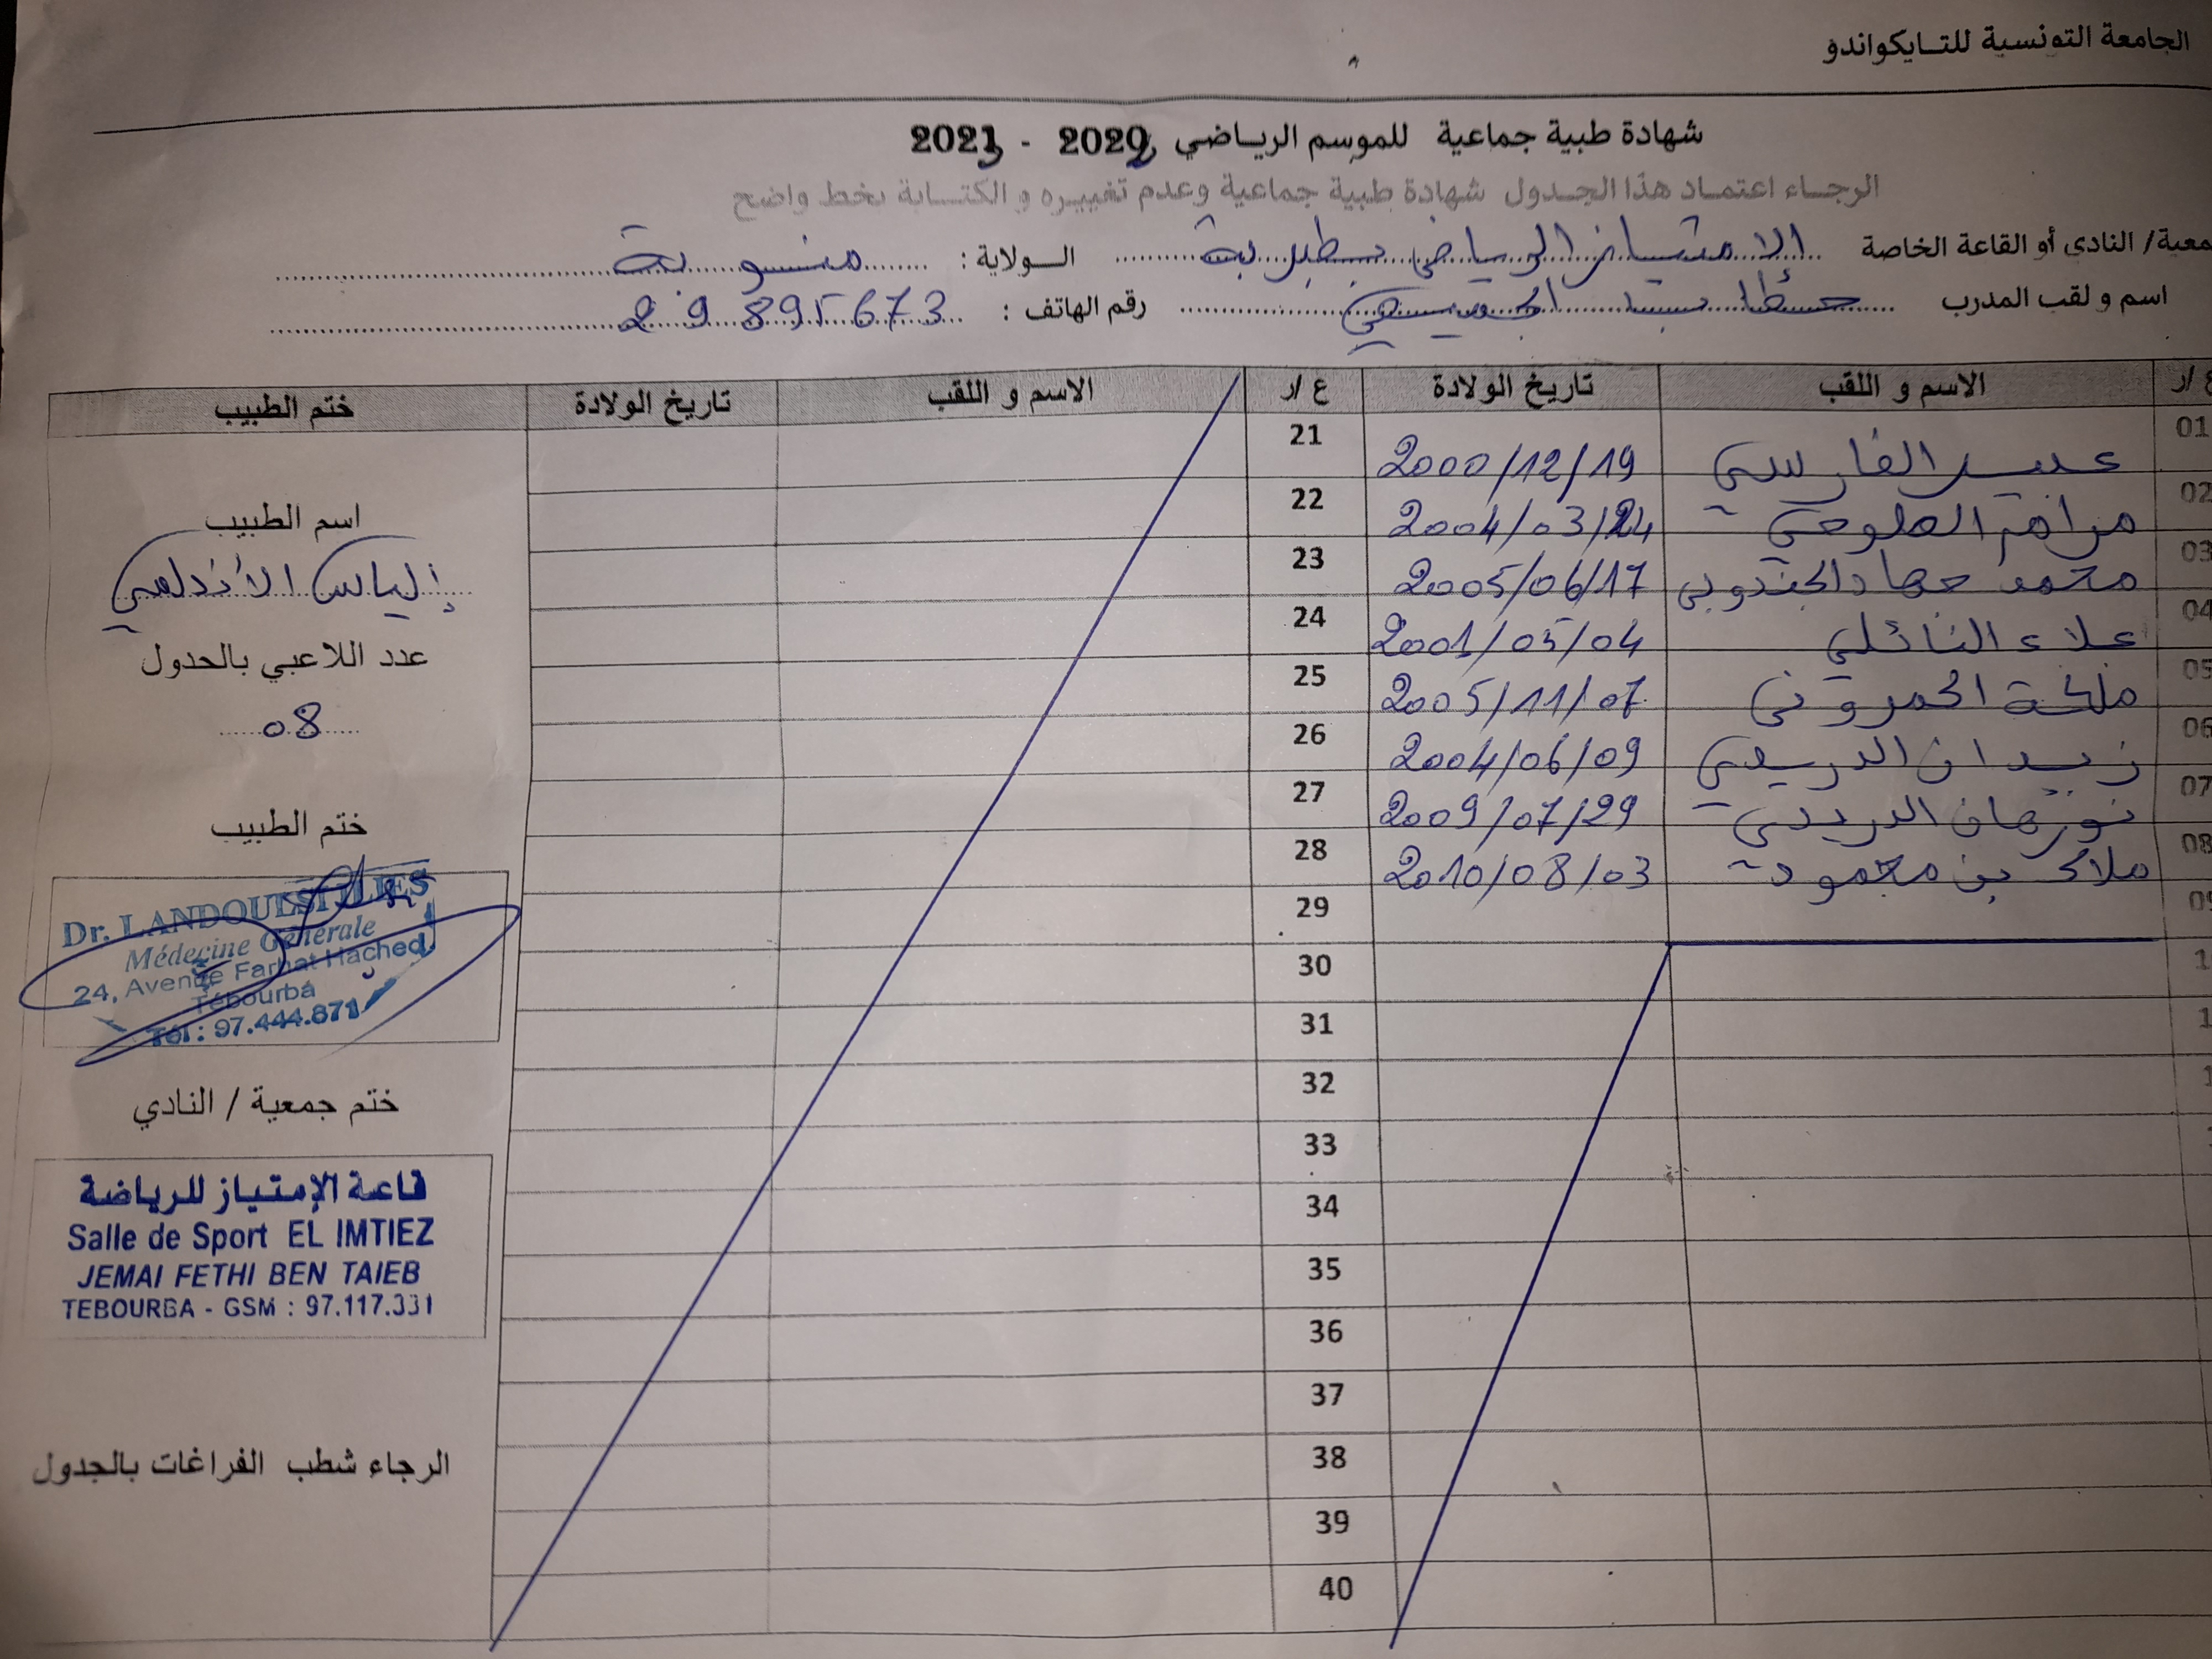 الجامعة التونسية للتــايكواندو
شهادة طبية جماعية للموسم الرياضي 2022 - 2023
الرجــاء اعتمــاد هذا الجــدول شهادة طبية جماعية وعدم تغييــره و الكتــابة بخط واضح
معية/ النادي أو القاعة الخاصة الامتياز الرياضي بطبربة الــولاية : منوبة
اسم و لقب المدرب رقم الهاتف : 29 895 673
ع /ر الاسم و اللقب تاريخ الولادة ع /ر الاسم و اللقب تاريخ الولادة ختم الطبيب
01 عبير الفارسي 2000/12/19 21
02 مرام 2004/03/24 22
03 محمد جهاد الجندوبي 2005/06/17 23
04 علاء النائلي 2001/05/04 24
05 ملكة الحمروني 2005/11/07 25
06 زيدان الدريدي 2004/06/09 26
07 نورهان الدريدي 2009/07/29 27
08 ملاك بن محمود 2010/08/03 28
09 29
30
31
32
33
34
35
36
37
38
39
40
اسم الطبيب
إلياس الأندلسي
عدد اللاعبي بالحدول
08
ختم الطبيب
Dr. LANDOULSI ILIES
Médecine Générale
24, Avenue Farhat Hached
Tébourba
Tél : 97.444.871
ختم جمعية / النادي
قاعة الإمتياز للرياضة
Salle de Sport EL IMTIEZ
JEMAI FETHI BEN TAIEB
TEBOURBA - GSM : 97.117.331
الرجاء شطب الفراغات بالجدول